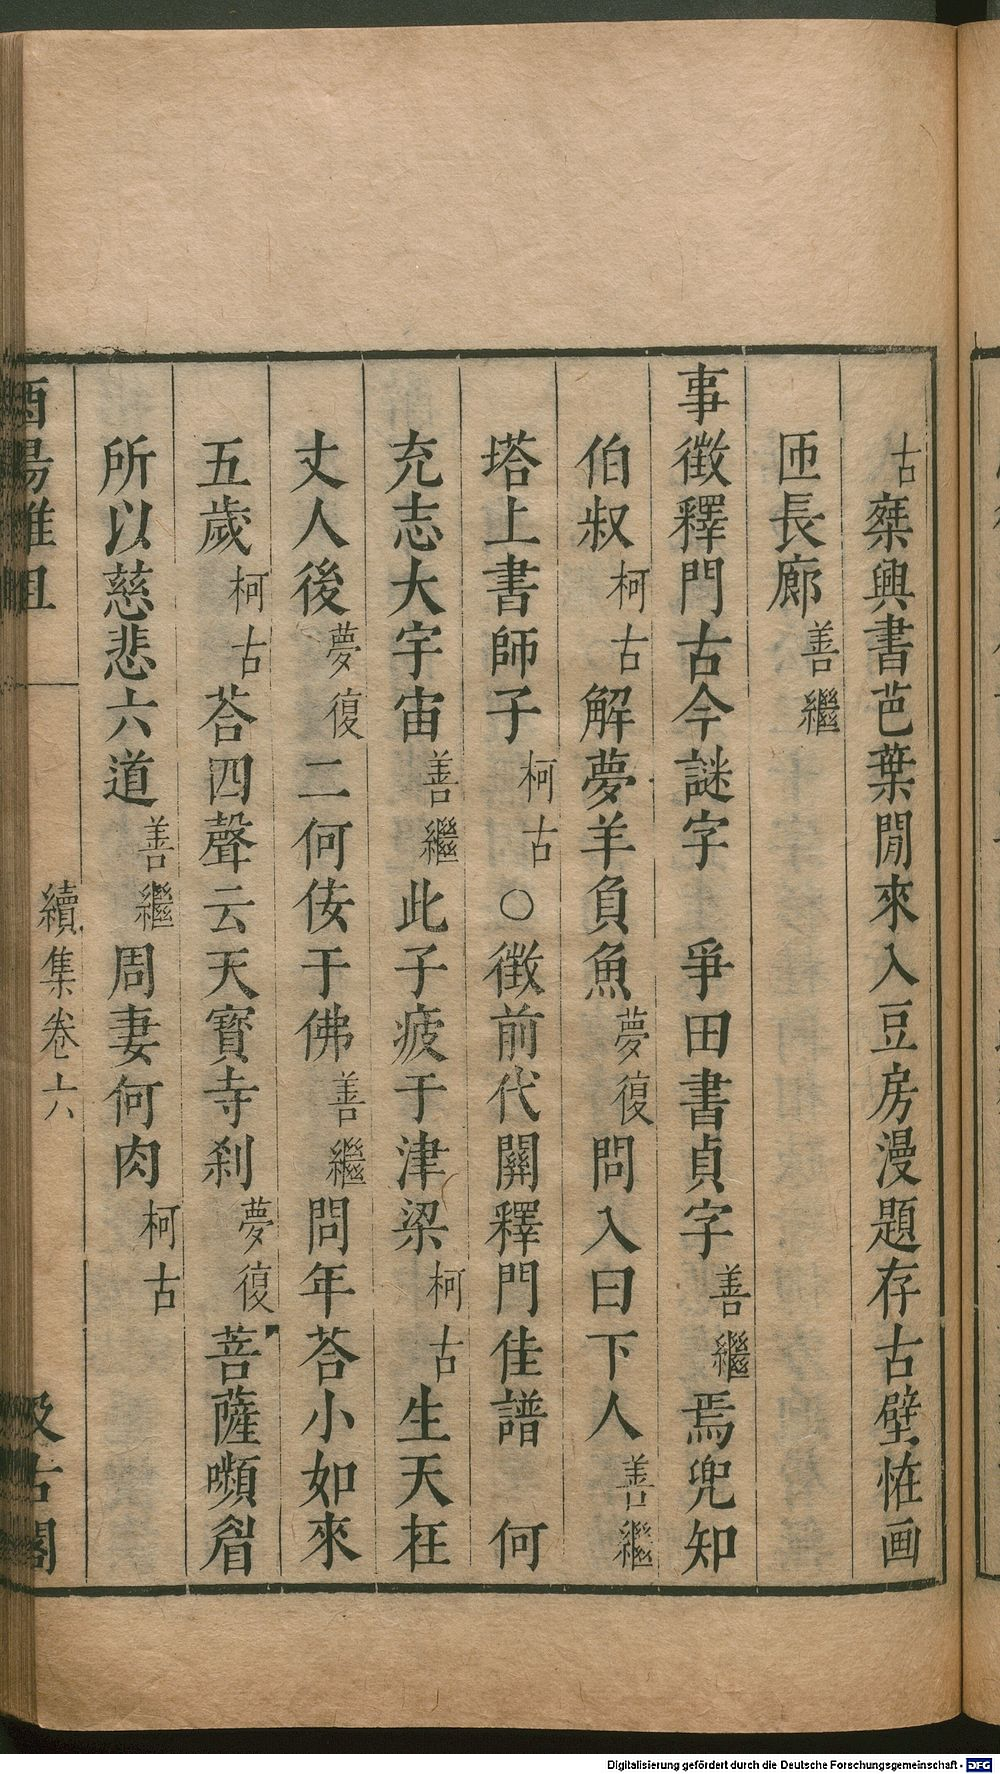 古 桀興書芭葉閒來入豆房漫題存古壁恠画
匝長廊 善繼
事徵釋門古今謎字 爭田書貞字 善繼 焉兜知
伯叔 柯古 解夢羊負魚 夢復 問入日下人 善繼
塔上書師子 柯古 ○徵前代關釋門佳譜 何
充志大宇宙 善繼 此子疲于津梁 柯古 生天在
丈人後 夢復 二何佞于佛 善繼 問年荅小如來
五歲 柯古 荅四聲云天寳寺刹 夢復 菩薩嚬眉
所以慈悲六道 善繼 周妻何肉 柯古
酉陽雜俎 續集卷六 汲古閣
Digitalisierung gefördert durch die Deutsche Forschungsgemeinschaft - DFG